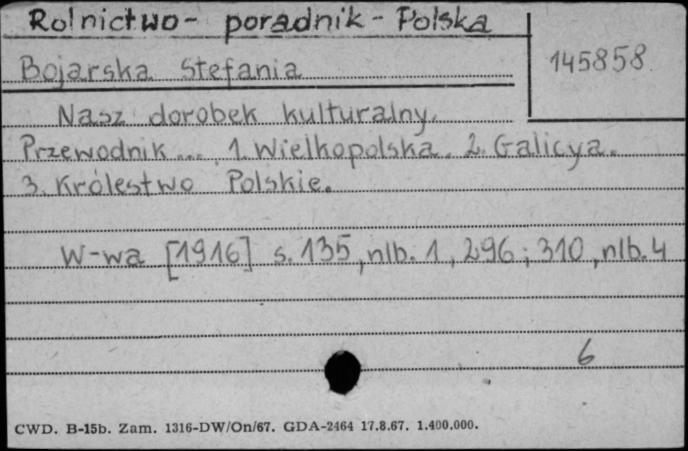 Rolnictwo- poradnik - Polska
145858
Bojarska Stefania
Nasz dorobek kulturalny.
Przewodnik ... 1. Wielkopolska. 2. Galicya.
3. Królestwo Polskie.
W-wa [1916] s. 135, nlb. 1, 296; 310, nlb. 4
6
CWD. B-15b. Zam. 1316-DW/On/67. GDA-2464 17.8.67. 1.400.000.